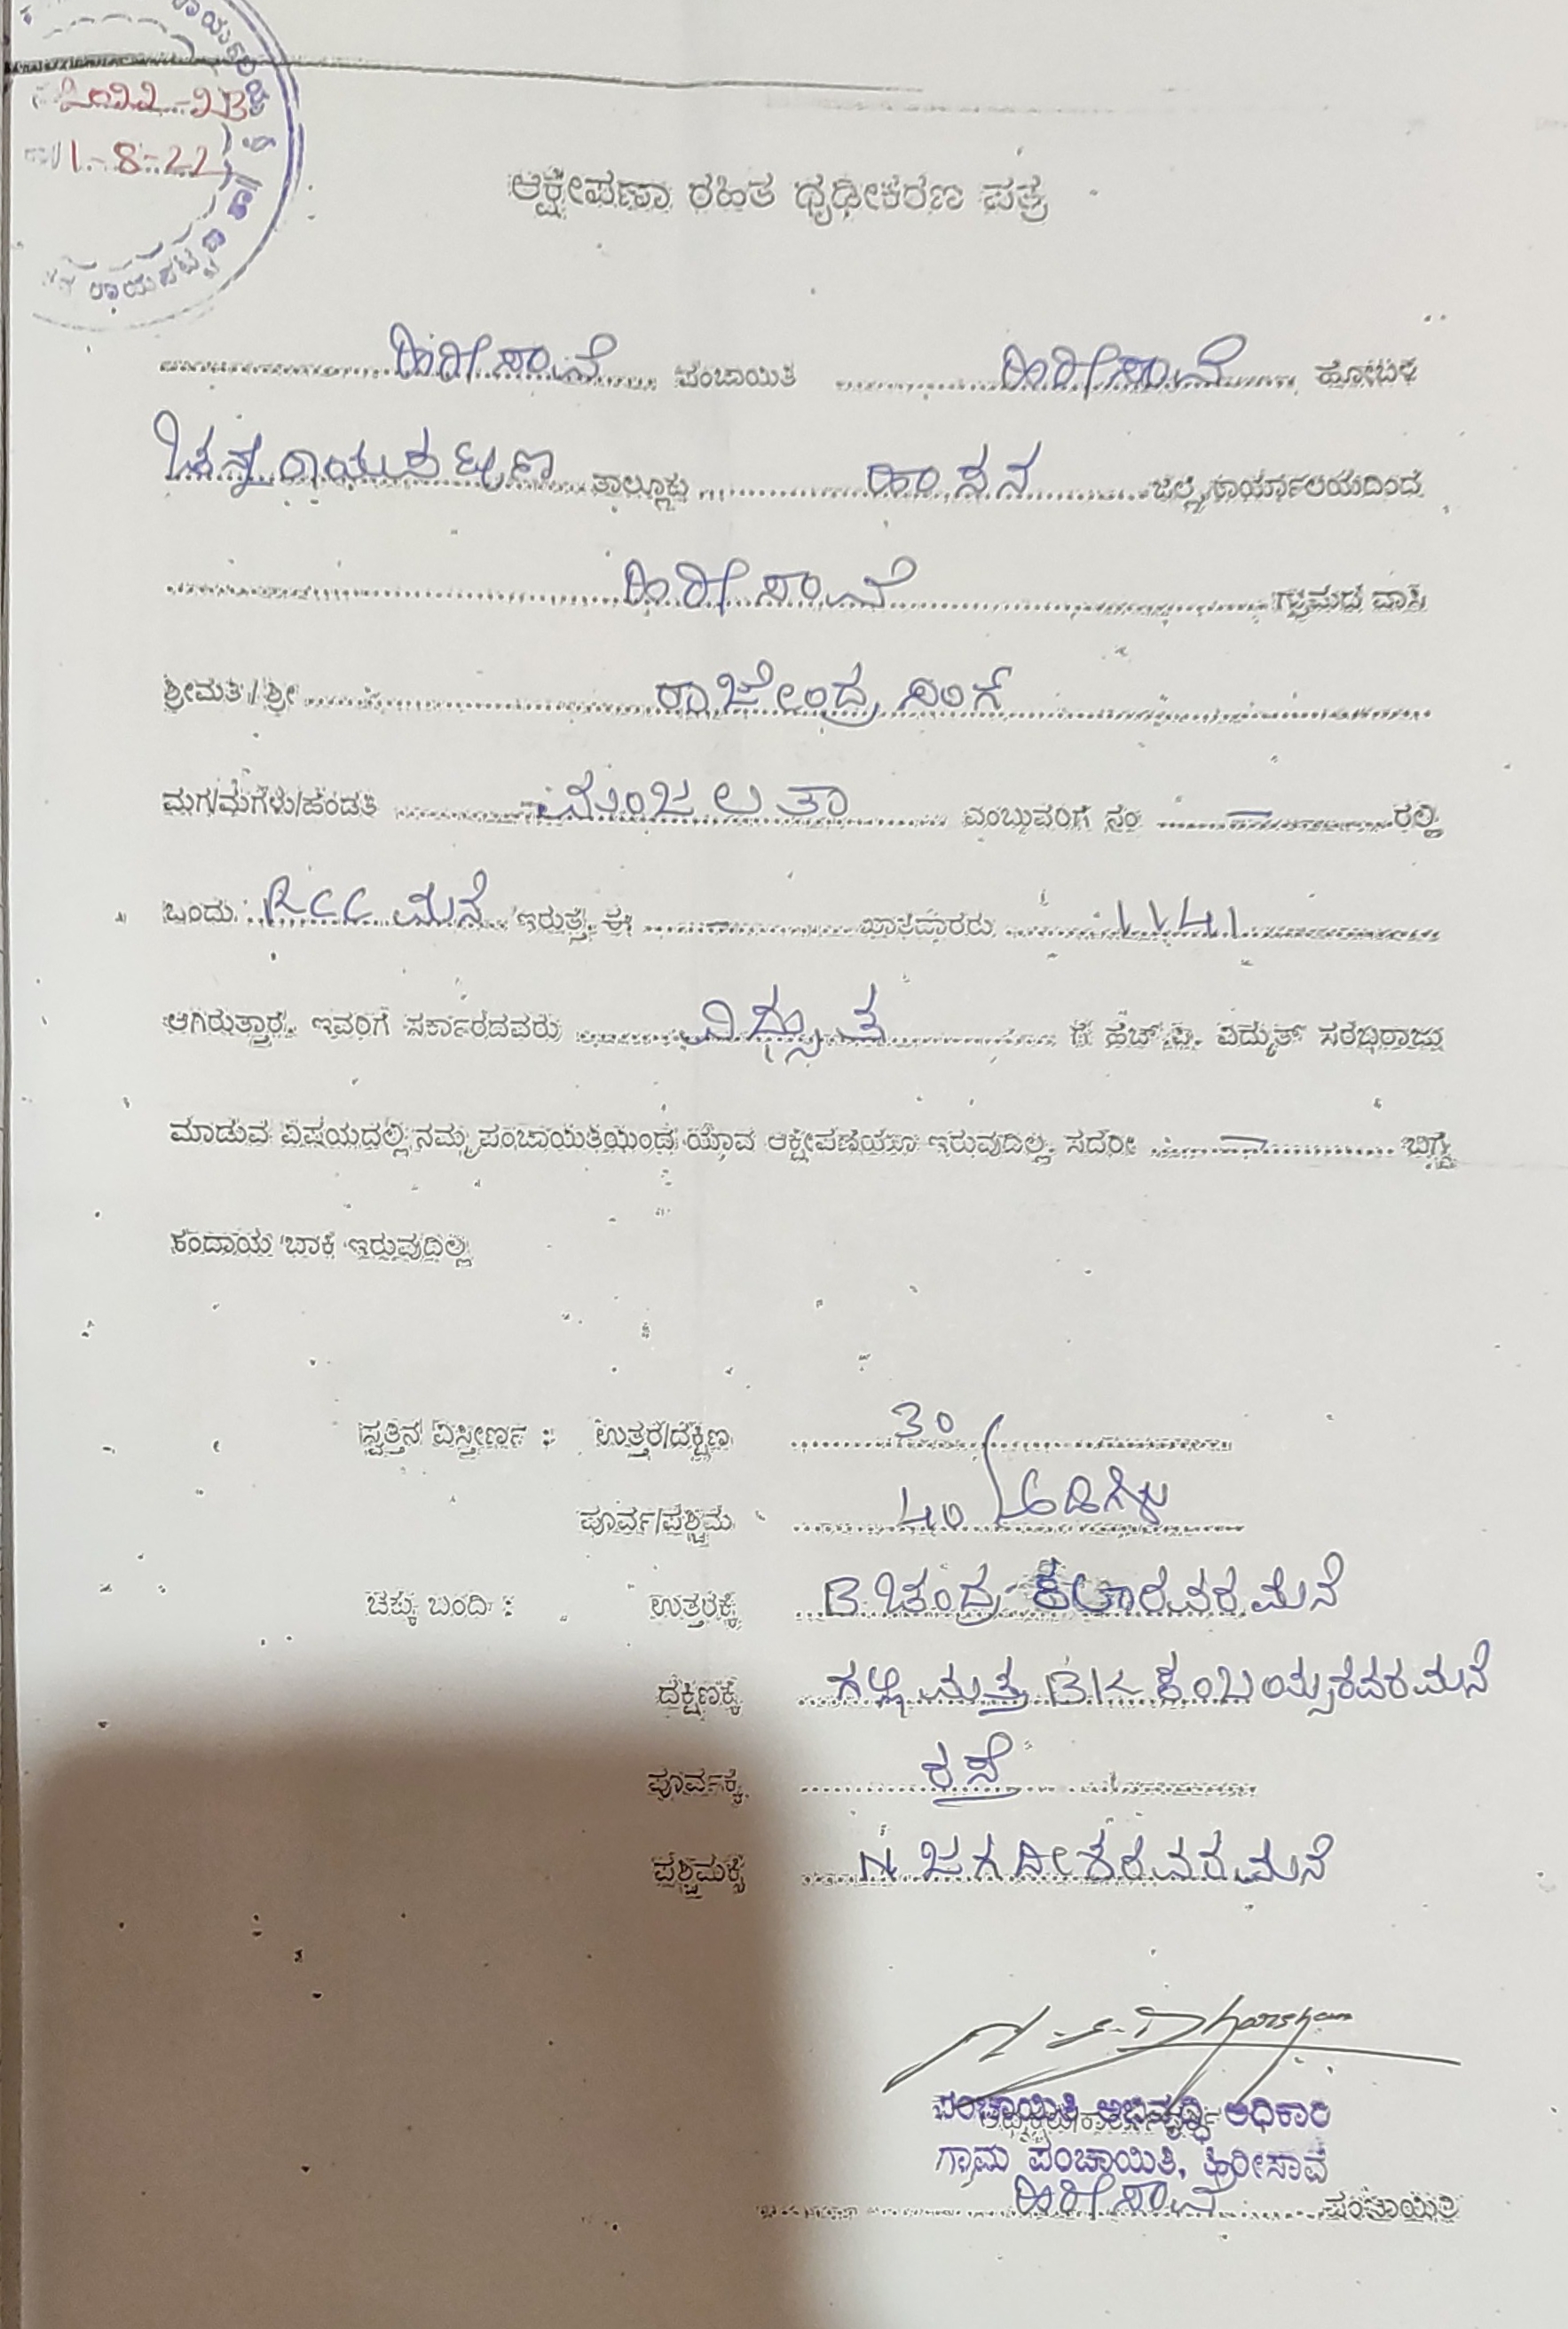 2022-23
1-8-22
ರಾಯಪಟ್ಟಣ
ಆಕ್ಷೇಪಣಾ ರಹಿತ ಧೃಢೀಕರಣ ಪತ್ರ
ಹಿರೀಸಾವೆ ಪಂಚಾಯಿತಿ ಹಿರೀಸಾವೆ ಹೋಬಳಿ
ಚನ್ನರಾಯಪಟ್ಟಣ ತಾಲ್ಲೂಕು ಹಾಸನ ಜಿಲ್ಲೆ ಕಾರ್ಯಾಲಯದಿಂದ
ಹಿರೀಸಾವೆ ಗ್ರಾಮದ ವಾಸಿ
ಶ್ರೀಮತಿ / ಶ್ರೀ ರಾಜೇಂದ್ರ ಸಿಂಗ್
ಮಗ/ಮಗಳು/ಹೆಂಡತಿ ಮಂಜಲತಾ ಎಂಬುವರಿಗೆ ನಂ — ರಲ್ಲಿ
ಒಂದು RCC ಮನೆ ಇರುತ್ತೆ. ಈ — ಖಾತೆದಾರರು 1141
ಆಗಿರುತ್ತಾರೆ. ಇವರಿಗೆ ಸರ್ಕಾರದವರು ಗೆ ಹೆಚ್.ಪಿ. ವಿದ್ಯುತ್ ಸರಬರಾಜು
ಮಾಡುವ ವಿಷಯದಲ್ಲಿ ನಮ್ಮ ಪಂಚಾಯಿತಿಯಿಂದ ಯಾವ ಆಕ್ಷೇಪಣೆಯೂ ಇರುವುದಿಲ್ಲ. ಸದರೀ — ಬಗ್ಗೆ
ಕಂದಾಯ ಬಾಕಿ ಇರುವುದಿಲ್ಲ
ಸ್ವತ್ತಿನ ವಿಸ್ತೀರ್ಣ : ಉತ್ತರ/ದಕ್ಷಿಣ 30
ಪೂರ್ವ/ಪಶ್ಚಿಮ 40 ಅಡಿಗಳು
ಚಕ್ಕು ಬಂದಿ : ಉತ್ತರಕ್ಕೆ B ಚಂದ್ರ ಕಲಾರವರ ಮನೆ
ದಕ್ಷಿಣಕ್ಕೆ ಗಲ್ಲಿ ಮತ್ತು BK ಕಂಬಯ್ಯರವರ ಮನೆ
ಪೂರ್ವಕ್ಕೆ ರಸ್ತೆ
ಪಶ್ಚಿಮಕ್ಕೆ N ಜಗದೀಶರವರ ಮನೆ
Dharshan
ಪಂಚಾಯಿತಿ ಅಭಿವೃದ್ಧಿ ಅಧಿಕಾರಿ
ಗ್ರಾಮ ಪಂಚಾಯಿತಿ, ಹಿರೀಸಾವೆ
ಹಿರೀಸಾವೆ ಪಂಚಾಯಿತಿ